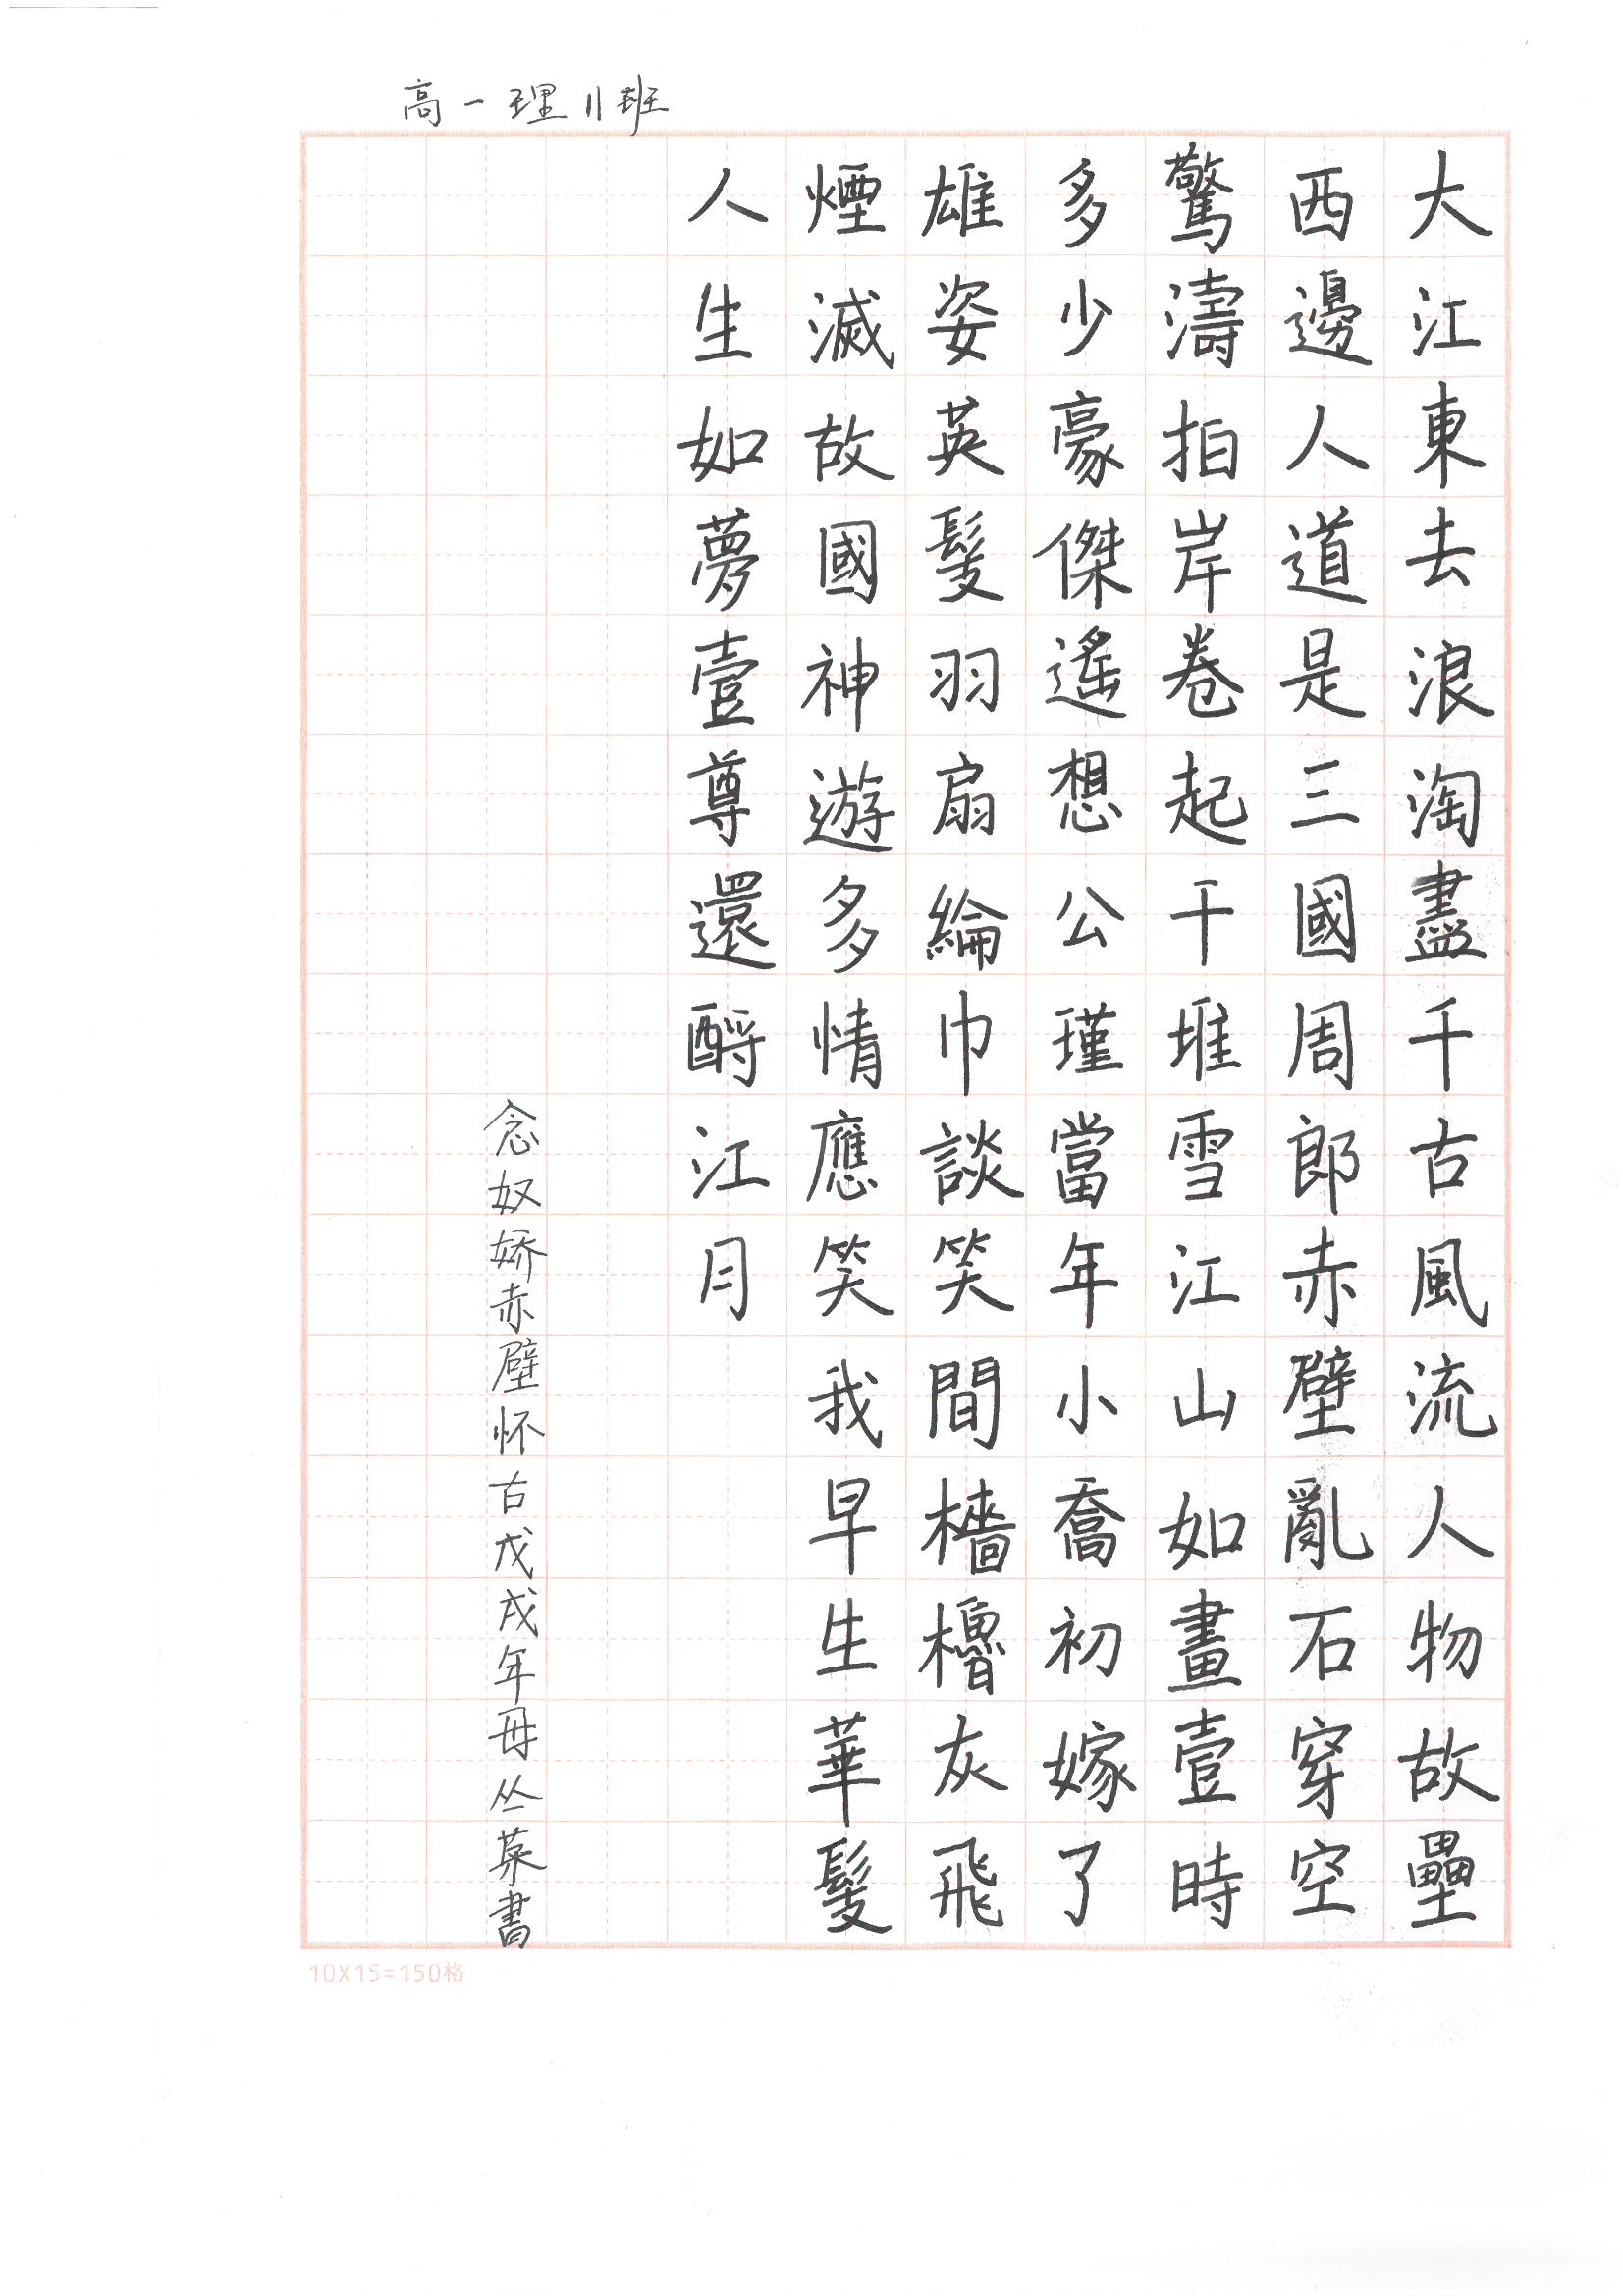 高一理11班
大江東去浪淘盡千古風流人物故壘
西邊人道是三國周郎赤壁亂石穿空
驚濤拍岸卷起千堆雪江山如畫壹時
多少豪傑遙想公瑾當年小喬初嫁了
雄姿英髮羽扇綸巾談笑間檣櫓灰飛
煙滅故國神遊多情應笑我早生華髮
人生如夢壹尊還酹江月
念奴娇赤壁怀古戊戌年毋丛菜書
10X15=150格